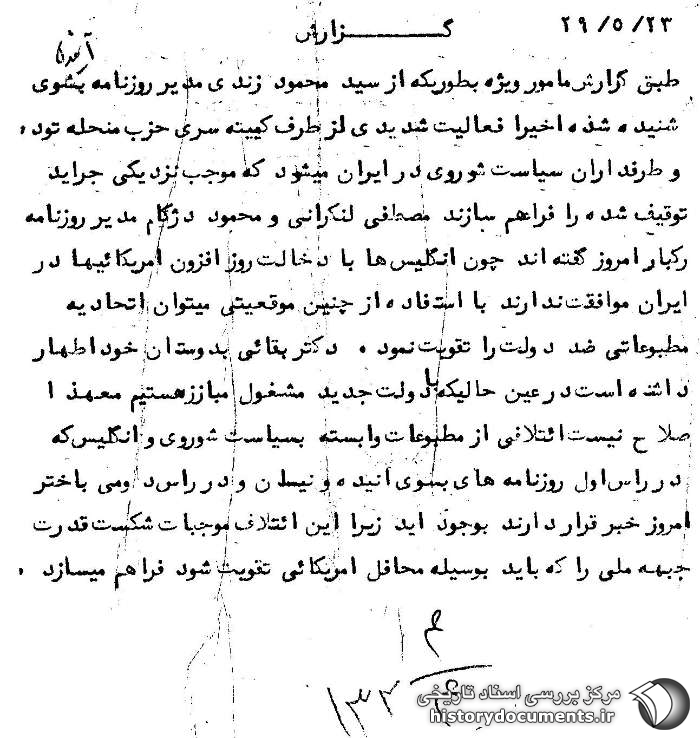 ۲۹/۵/۲۳
گزارش
آینده
طبق گزارش مامور ویژه بطوریکه از سید محمود زندی مدیر روزنامه بسوی
شنیده شده اخیرا فعالیت شدیدی از طرف کمیته سری حزب منحله توده
و طرفداران سیاست شوروی در ایران میشود که موجب نزدیکی جراید
توقیف شده را فراهم سازند مصطفی لنکرانی و محمود دژکام مدیر روزنامه
رگبار امروز گفته اند چون انگلیس ها با دخالت روز افزون امریکائیها در
ایران موافقت ندارند با استفاده از چنین موقعیتی میتوان اتحادیه
مطبوعاتی ضد دولت را تقویت نمود . دکتر بقائی بدوستان خود اظهار
داشته است در عین حالیکه با دولت جدید مشغول مبارزهستیم معهذا
صلاح نیست ائتلافی از مطبوعات وابسته بسیاست شوروی و انگلیس که
در راس اول روزنامه های بسوی اینده و نیسان و در راس دومی باختر
امروز خبر قرار دارند بوجود اید زیرا این ائتلاف موجبات شکست قدرت
جبهه ملی را که باید بوسیله محافل امریکائی تقویت شود فراهم میسازد .
مرکز بررسی اسناد تاریخی
historydocuments.ir